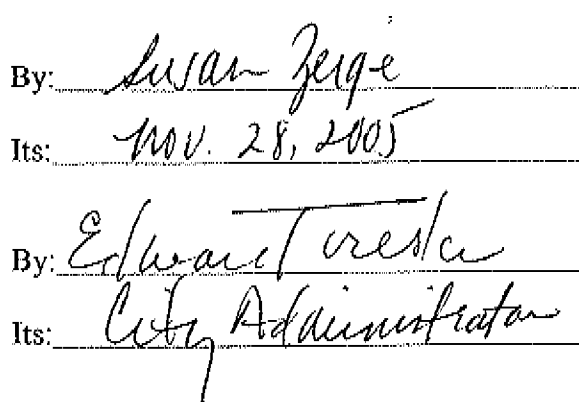 By: Susan Zerge
Its: Nov. 28, 2005
By: Edward
Its: City Administrator